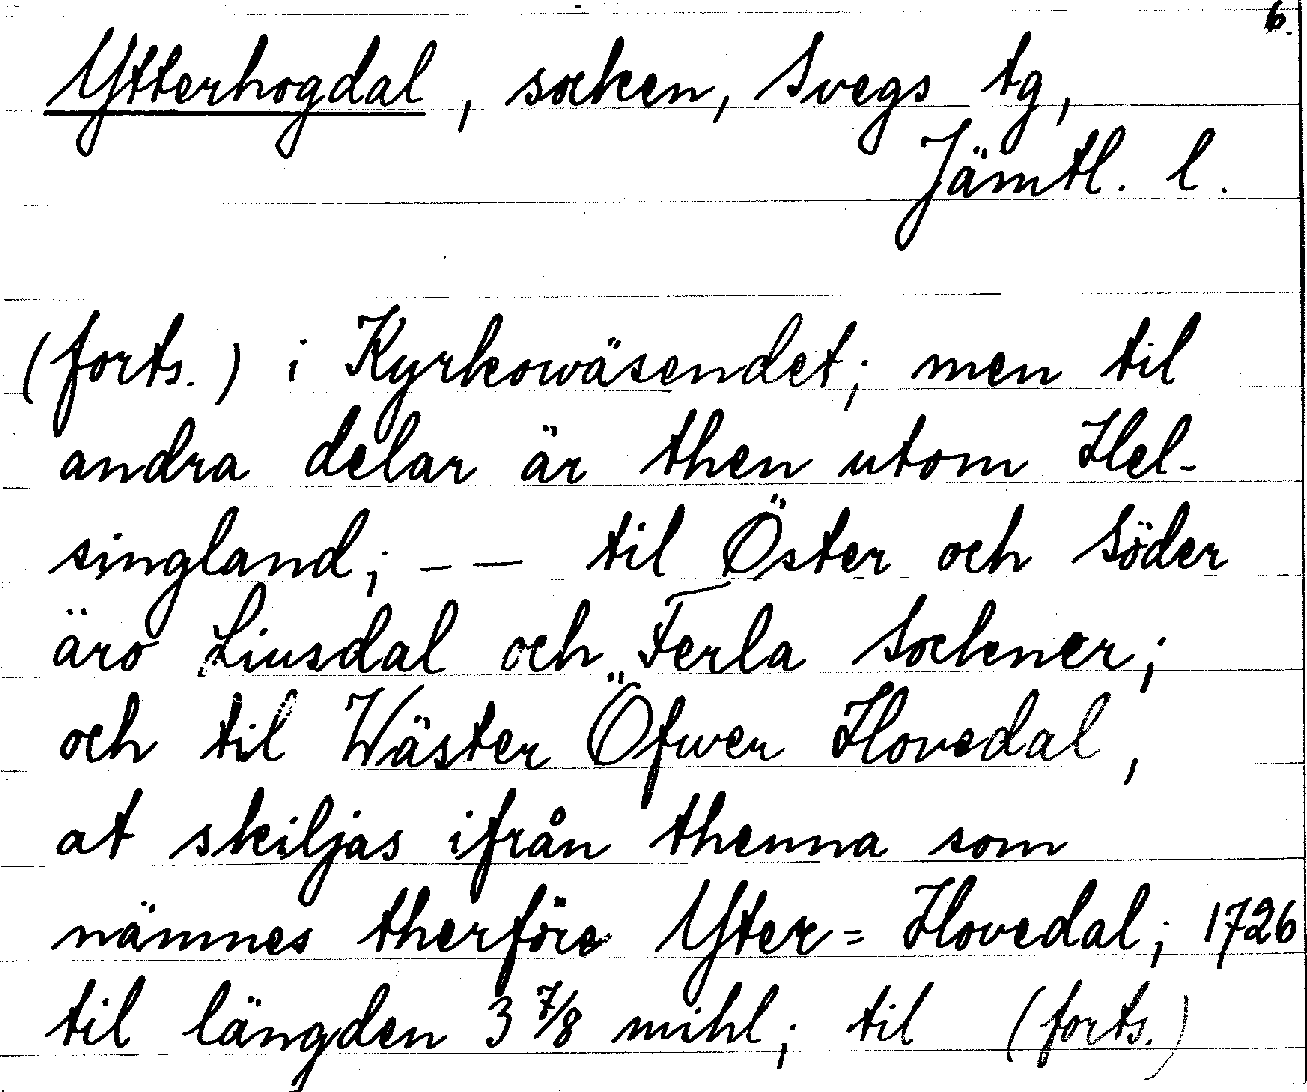 6.
Ytterhogdal, socken, Svegs tg,
Jämtl. l.
(forts.) i Kyrkowäsendet; men til
andra delar är then utom Hel-
singland; - — til Öster och Söder
äro Liusdal och Ferla Sockner;
och til Wäster Öfwer Hovedal,
at skiljas ifrån thenna som
nämnes therföre Yter= Hovedal; 1726
til längden 3 7/8 mihl; til (forts.)